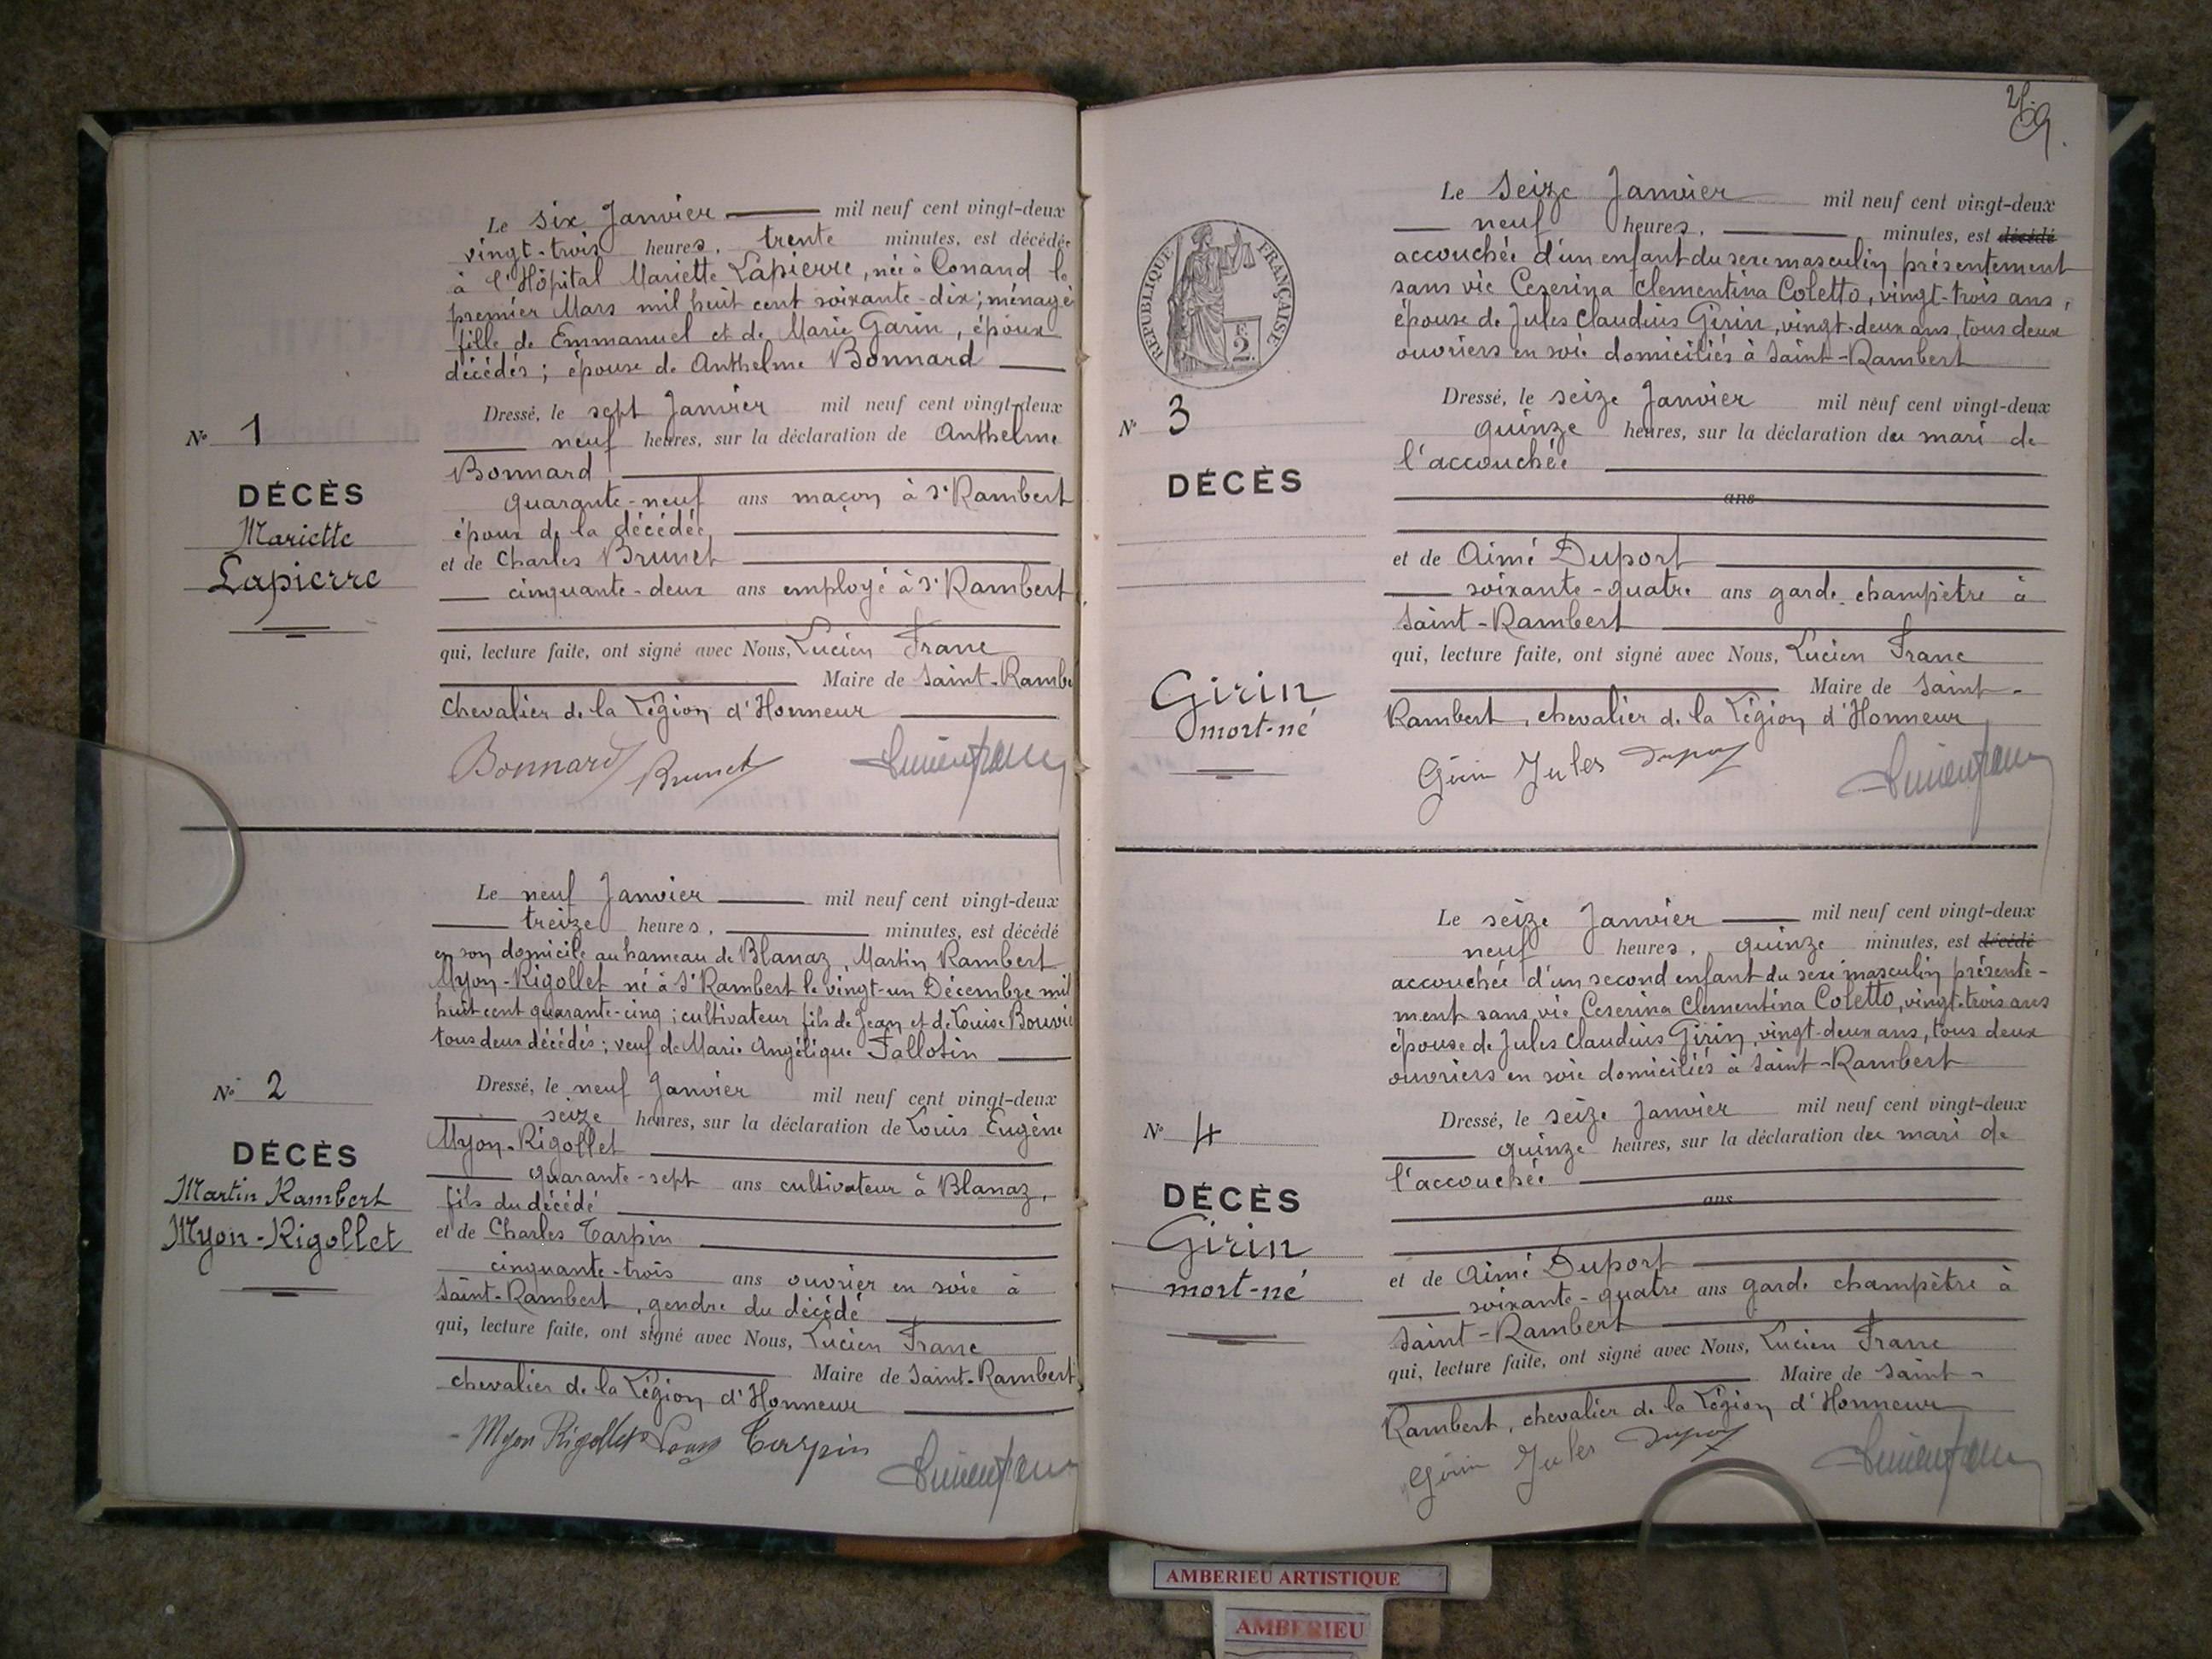 Le six Janvier mil neuf cent vingt-deux
vingt-trois heures, trente minutes, est décédée
à l'Hôpital Mariette Lapierre, née à Conand le
premier Mars mil huit cent soixante-dix; ménagè
fille de Emmanuel et de Marie Garin, époux
décédés; épouse de Anthelme Bonnard
Dressé, le sept Janvier mil neuf cent vingt-deux
neuf heures, sur la déclaration de Anthelme
Bonnard
quarante-neuf ans maçon à St Rambert
époux de la décédée
et de Charles Brunet
cinquante-deux ans employé à St Rambert
qui, lecture faite, ont signé avec Nous, Lucien Franc
Maire de Saint-Rambe
Chevalier de la Légion d'Honneur
Bonnard Brunet Lucien Franc
No 1
DÉCÈS
Mariette
Lapierre
Le neuf Janvier mil neuf cent vingt-deux
treize heures, minutes, est décédé
en son domicile au hameau de Blanaz, Martin Rambert
Myon-Rigollet né à St Rambert le vingt-un Décembre mil
huit cent quarante-cinq; cultivateur fils de Jean et de Louise Bouvie
tous deux décédés; veuf de Marie Angélique Fallotin
Dressé, le neuf Janvier mil neuf cent vingt-deux
seize heures, sur la déclaration de Louis Eugène
Myon-Rigollet
quarante-sept ans cultivateur à Blanaz,
fils du décédé
et de Charles Tarpin
cinquante-trois ans ouvrier en soie à
Saint-Rambert, gendre du décédé
qui, lecture faite, ont signé avec Nous, Lucien Franc
Maire de Saint-Rambert
chevalier de la Légion d'Honneur
Myon Rigollet Louis Tarpin Lucien Franc
No 2
DÉCÈS
Martin Rambert
Myon-Rigollet
RÉPUBLIQUE FRANÇAISE
2
Le seize Janvier mil neuf cent vingt-deux
neuf heures, minutes, est décédé
accouchée d'un enfant du sexe masculin présentement
sans vie Cezerina Clementina Coletto, vingt-trois ans,
épouse de Jules Claudius Girin, vingt-deux ans, tous deux
ouvriers en soie domiciliés à Saint-Rambert
Dressé, le seize Janvier mil neuf cent vingt-deux
quinze heures, sur la déclaration du mari de
l'accouchée
ans
et de Aimé Duport
soixante-quatre ans garde champêtre à
Saint-Rambert
qui, lecture faite, ont signé avec Nous, Lucien Franc
Maire de Saint-
Rambert, chevalier de la Légion d'Honneur
Girin Jules Duport Lucien Franc
No 3
DÉCÈS
Girin
mort-né
Le seize Janvier mil neuf cent vingt-deux
neuf heures, quinze minutes, est décédé
accouchée d'un second enfant du sexe masculin présente-
ment sans vie Ceserina Clementina Coletto, vingt-trois ans
épouse de Jules Claudius Girin, vingt-deux ans, tous deux
ouvriers en soie domiciliés à Saint-Rambert
Dressé, le seize Janvier mil neuf cent vingt-deux
quinze heures, sur la déclaration du mari de
l'accouchée
ans
et de Aimé Duport
soixante-quatre ans garde champêtre à
Saint-Rambert
qui, lecture faite, ont signé avec Nous, Lucien Franc
Maire de Saint-
Rambert, chevalier de la Légion d'Honneur
Girin Jules Duport Lucien Franc
No 4
DÉCÈS
Girin
mort-né
AMBERIEU ARTISTIQUE
AMBERIEU